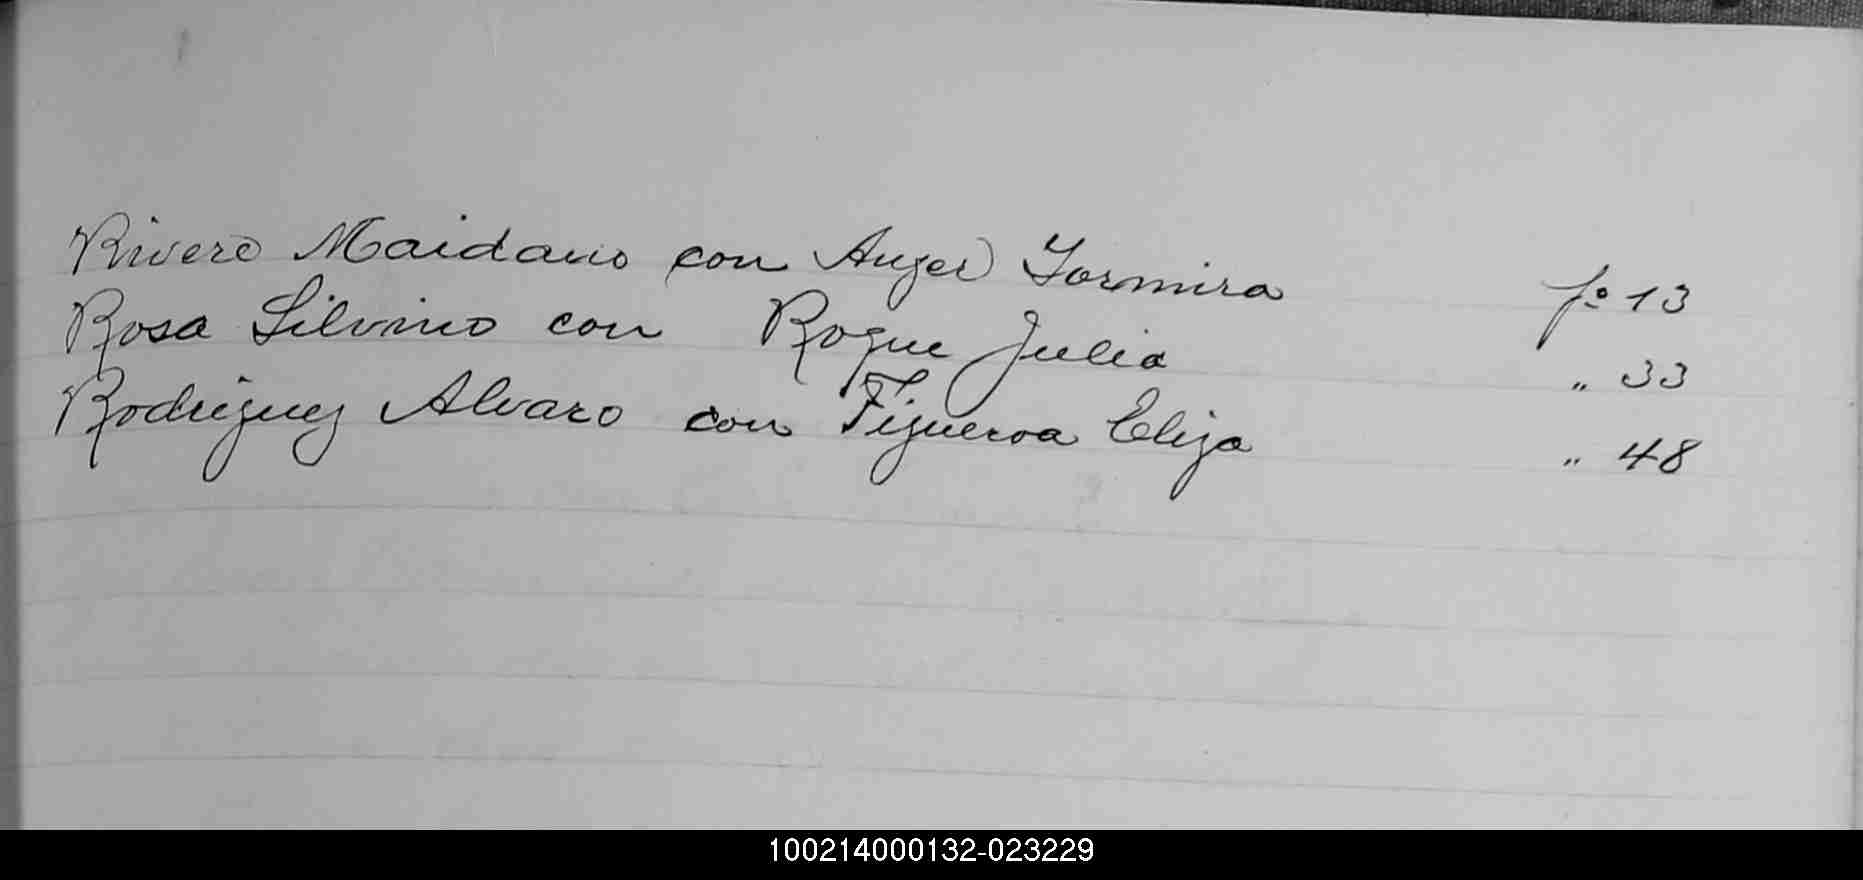 Rivero Maidano con Anger Yormira fº 13
Rosa Silvino con Roque Julia " 33
Rodriguez Alvaro con Figueroa Eliza " 48
100214000132-023229